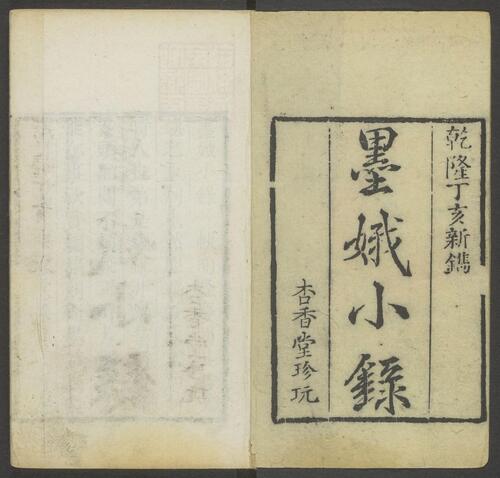 乾隆丁亥新鐫
墨娥小錄
杏香堂珍玩